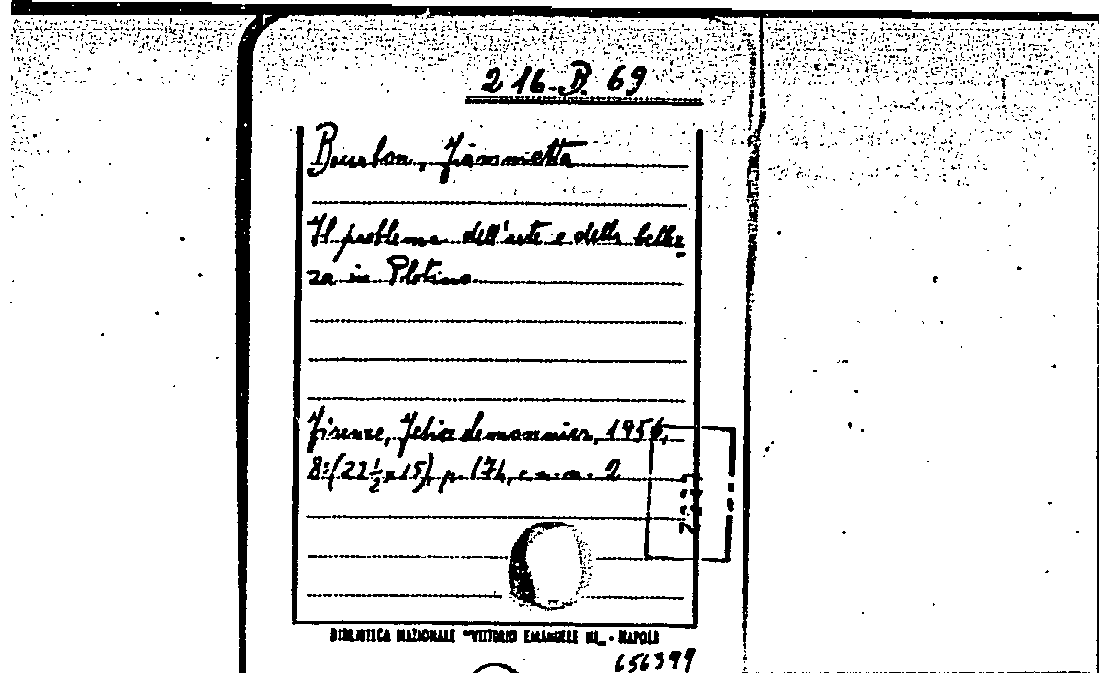 216-B. 69
Bourbon, Fiammetta
Il problema dell'arte e della bellez
za in Plotino
Firenze, Felice Lemonnier, 1956,
8º (22½ x 15), p. 174, c.n.n. 2
BIBLIOTECA NAZIONALE "VITTORIO EMANUELE III" - NAPOLI
656399